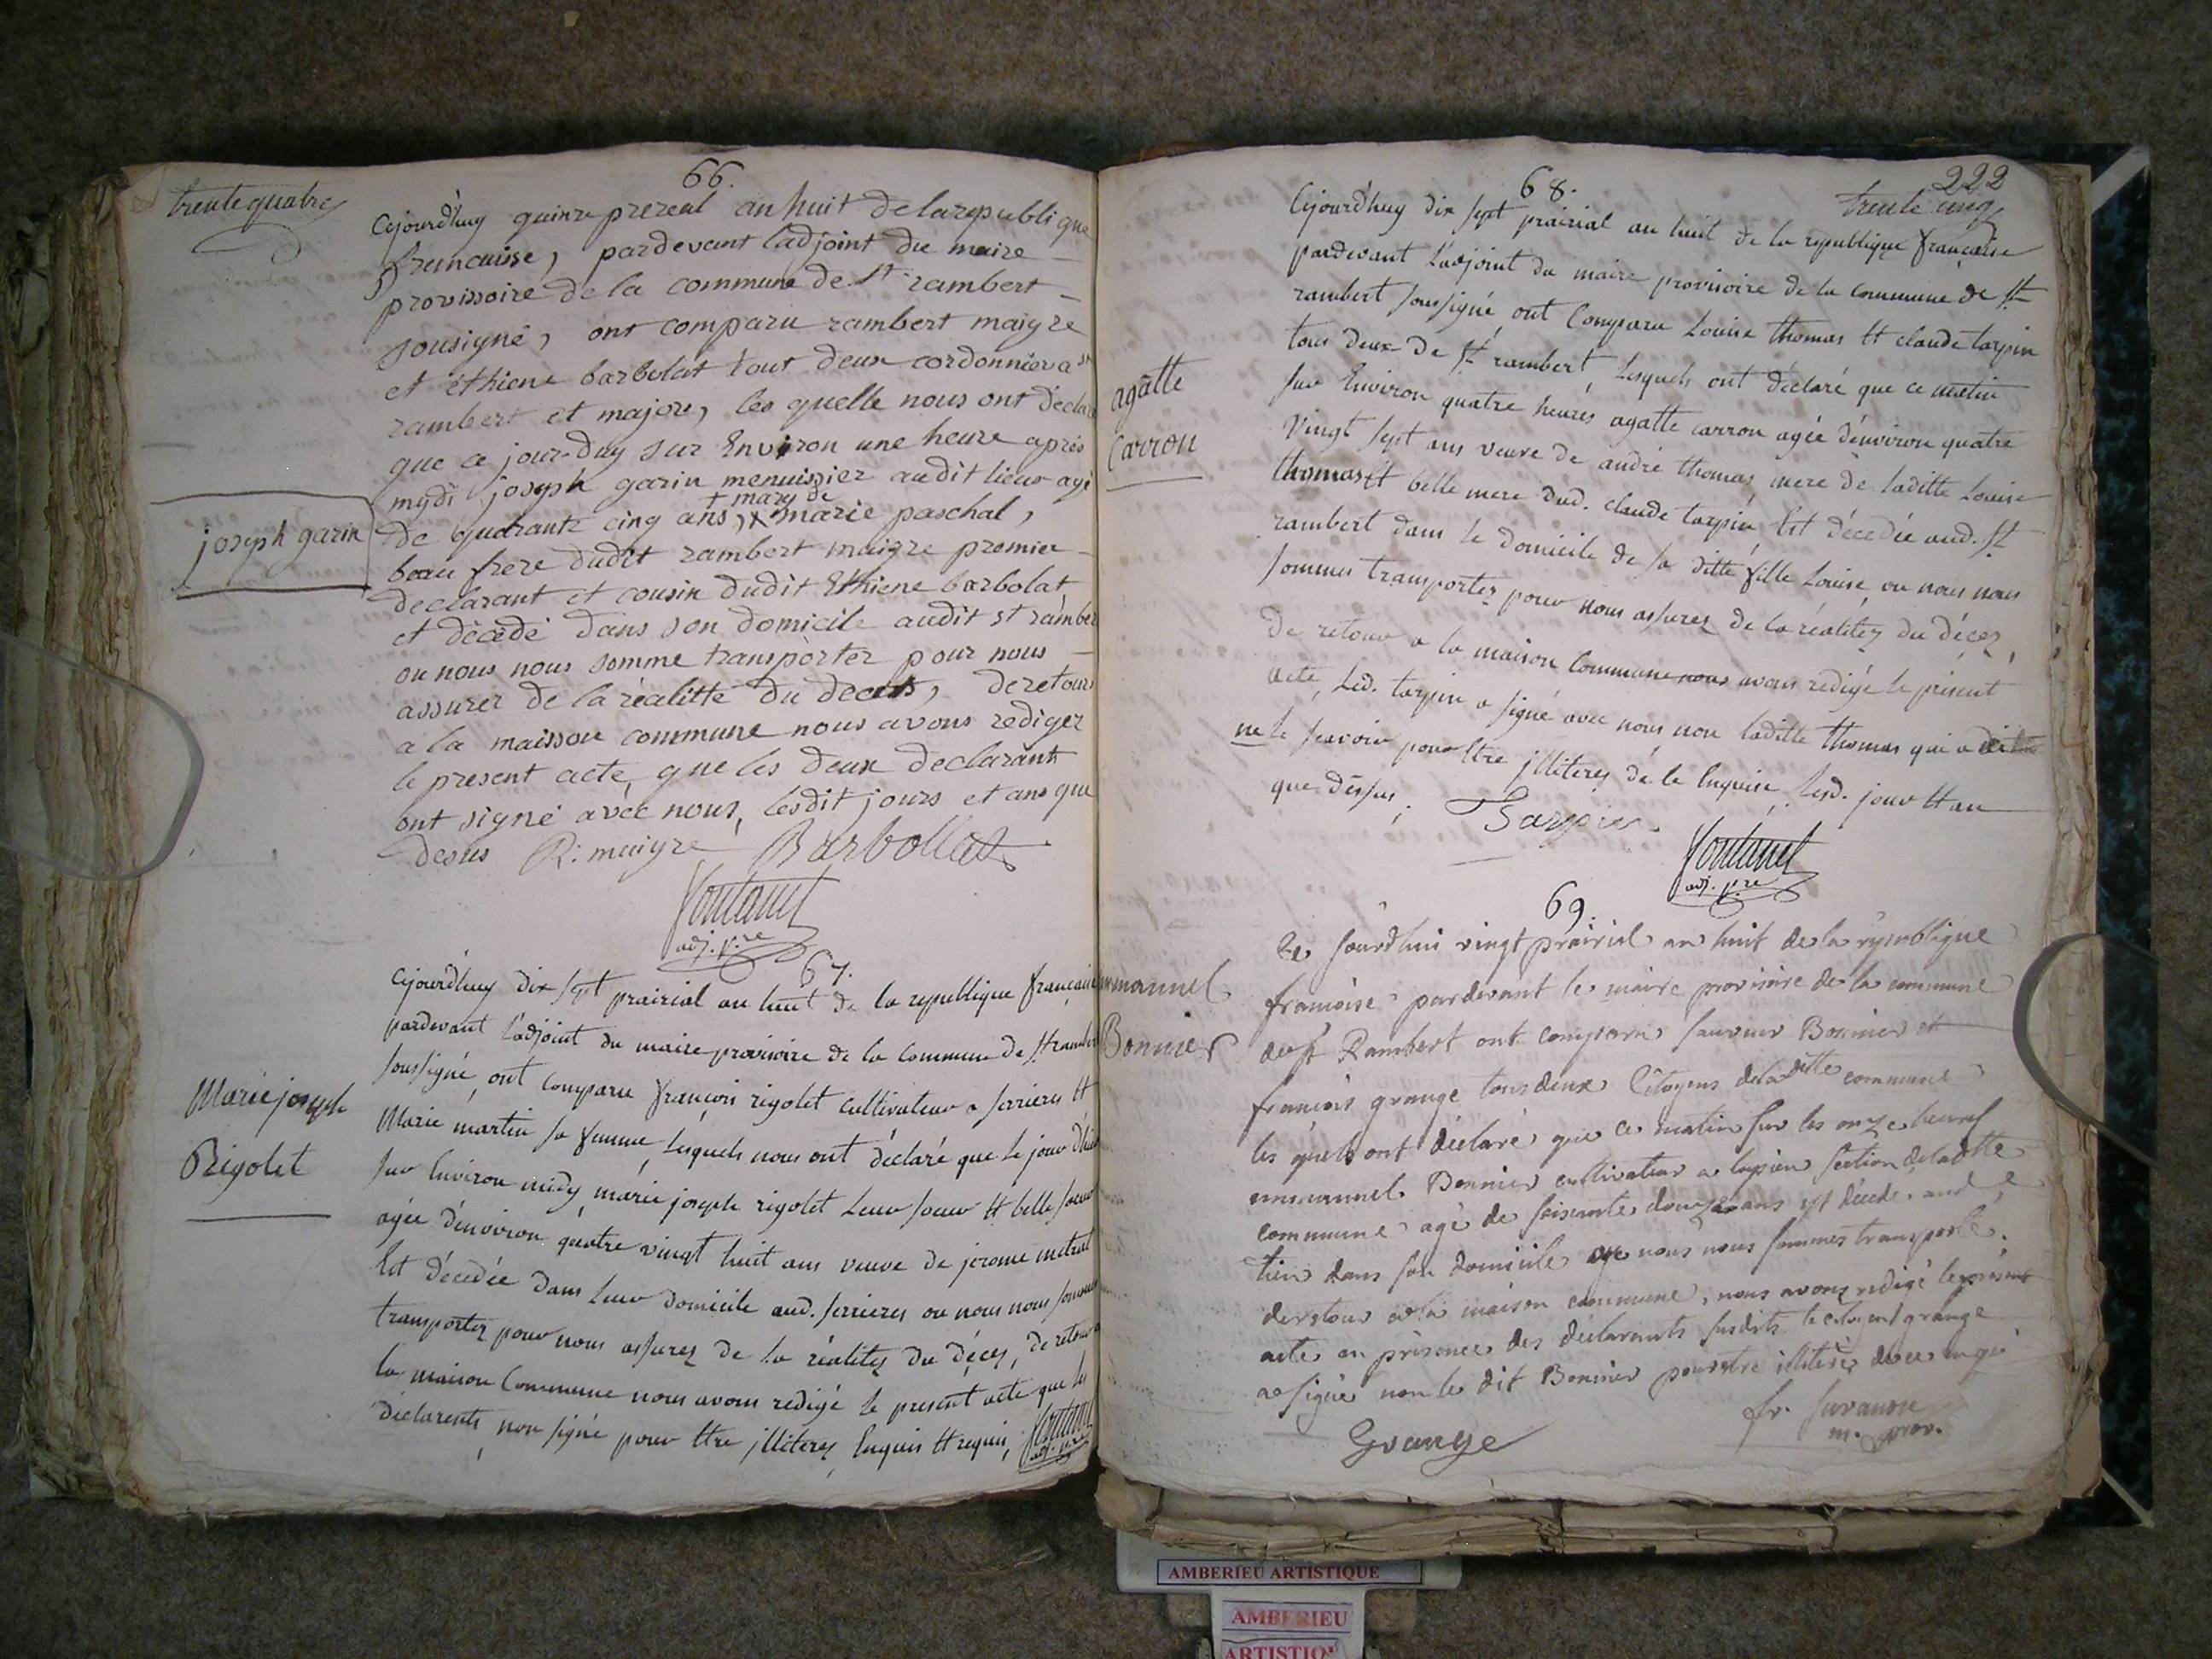 trente quatre
66.
Cejourdhuy quinze prereal an huit de la republique
francaise, pardevant l'adjoint du maire
provissoire de la commune de St rambert
sousigné, ont comparu rambert maigre
et éthiene barbolat tout deux cordonnier a St
rambert et majore, les quelle nous ont déclaré
que ce jour-duy sur Environ une heure après
mydi joseph garin menuissier audit lieux agé
+ mary de
de quarante cinq ans, x marie paschal,
joseph garin
beau frere dudit rambert maigre premier
declarant et cousin dudit Ethiene barbolat
et décedé dans son domicile audit st rambert
ou nous nous somme transporter pour nous
assurer de la réalitté du deces, de retours
a la maisson commune nous avons rediger
le present acte, que les deux declarant
ont signé avéc nous, lesdit jours et ans que
desus R. maigre Barbollat
Fontanel
adj. p.re
67.
Cejourdhuy dix sept prairial an huit de la republique francaise
pardevant l'adjoint du maire provisoire de la commune de St rambert
soussigné, ont comparu françois rigolet cultivateur a serrieres Et
Marie joseph
Rigolet
Marie martin sa femme, Lesquels nous ont déclaré que le jour d'hier
sur Environ midy, marie joseph rigolet Leur soeur Et belle soeur
agée d'environ quatre vingt huit ans veuve de jerome metral
Est décedée dans Leur domicile aud. serrieres ou nous nous sommes
transportez pour nous assurez de la réalitez du déces, de retour a
la maison Commune nous avons redigé le present acte que les
déclarents, non signé pour Etre jlliterez Enquis Et requis, Fontanel
adj. p.re
222
trente cinq
68.
Cejourdhuy dix sept prairial an huit de la republique française
pardevant L'adjoint du maire provisoire de la commune de St
rambert soussigné, ont Comparu Louise thomas Et claude tarpin
tous deux de St rambert, Lesquels ont déclaré que ce matin
agatte
Carron
sur Environ quatre heures agatte carron agée d'environ quatre
Vingt sept ans veuve de andré thomas, mere de laditte Louise
thomas Et belle mere dud. claude tarpin Est décedée aud. St
rambert dans le domicile de sa ditte fille Louise, ou nous nous
sommes transportez pour nous assurez de la réalitez du déces,
de retour a la maison Commune nous avons redigé le présent
acte, Led. tarpin a signé avec nous non laditte thomas qui a dit
ne le scavoir pour Etre jlliterez de le Enquise, Lesd. jour Et an
que dessus; Tarpin
Fontanel
adj. p.re
69.
Ce jourdhui vingt prairial an huit de la republique
emmanuel
Bonnier
françoise pardevant le maire provisoire de la commune
de St Rambert ont comparu Bonnier et
françois grange tous deux Citoyens de la ditte commune
les quels ont déclaré que ce matin sur les onze heures
emmanuel Bonnier cultivateur a section de la ditte
commune agé de soisente douze ans est décedé aud
lieu dans son domicile nous nous sommes transporté
de retour a la maison commune, nous avons redigé le présent
acte en présence des déclarants susdits le citoyen grange
a signé non le dit Bonnier pour etre
Grange
fr. Juvanon
m. prov.
AMBERIEU ARTISTIQUE
AMBERIEU
ARTISTIQU